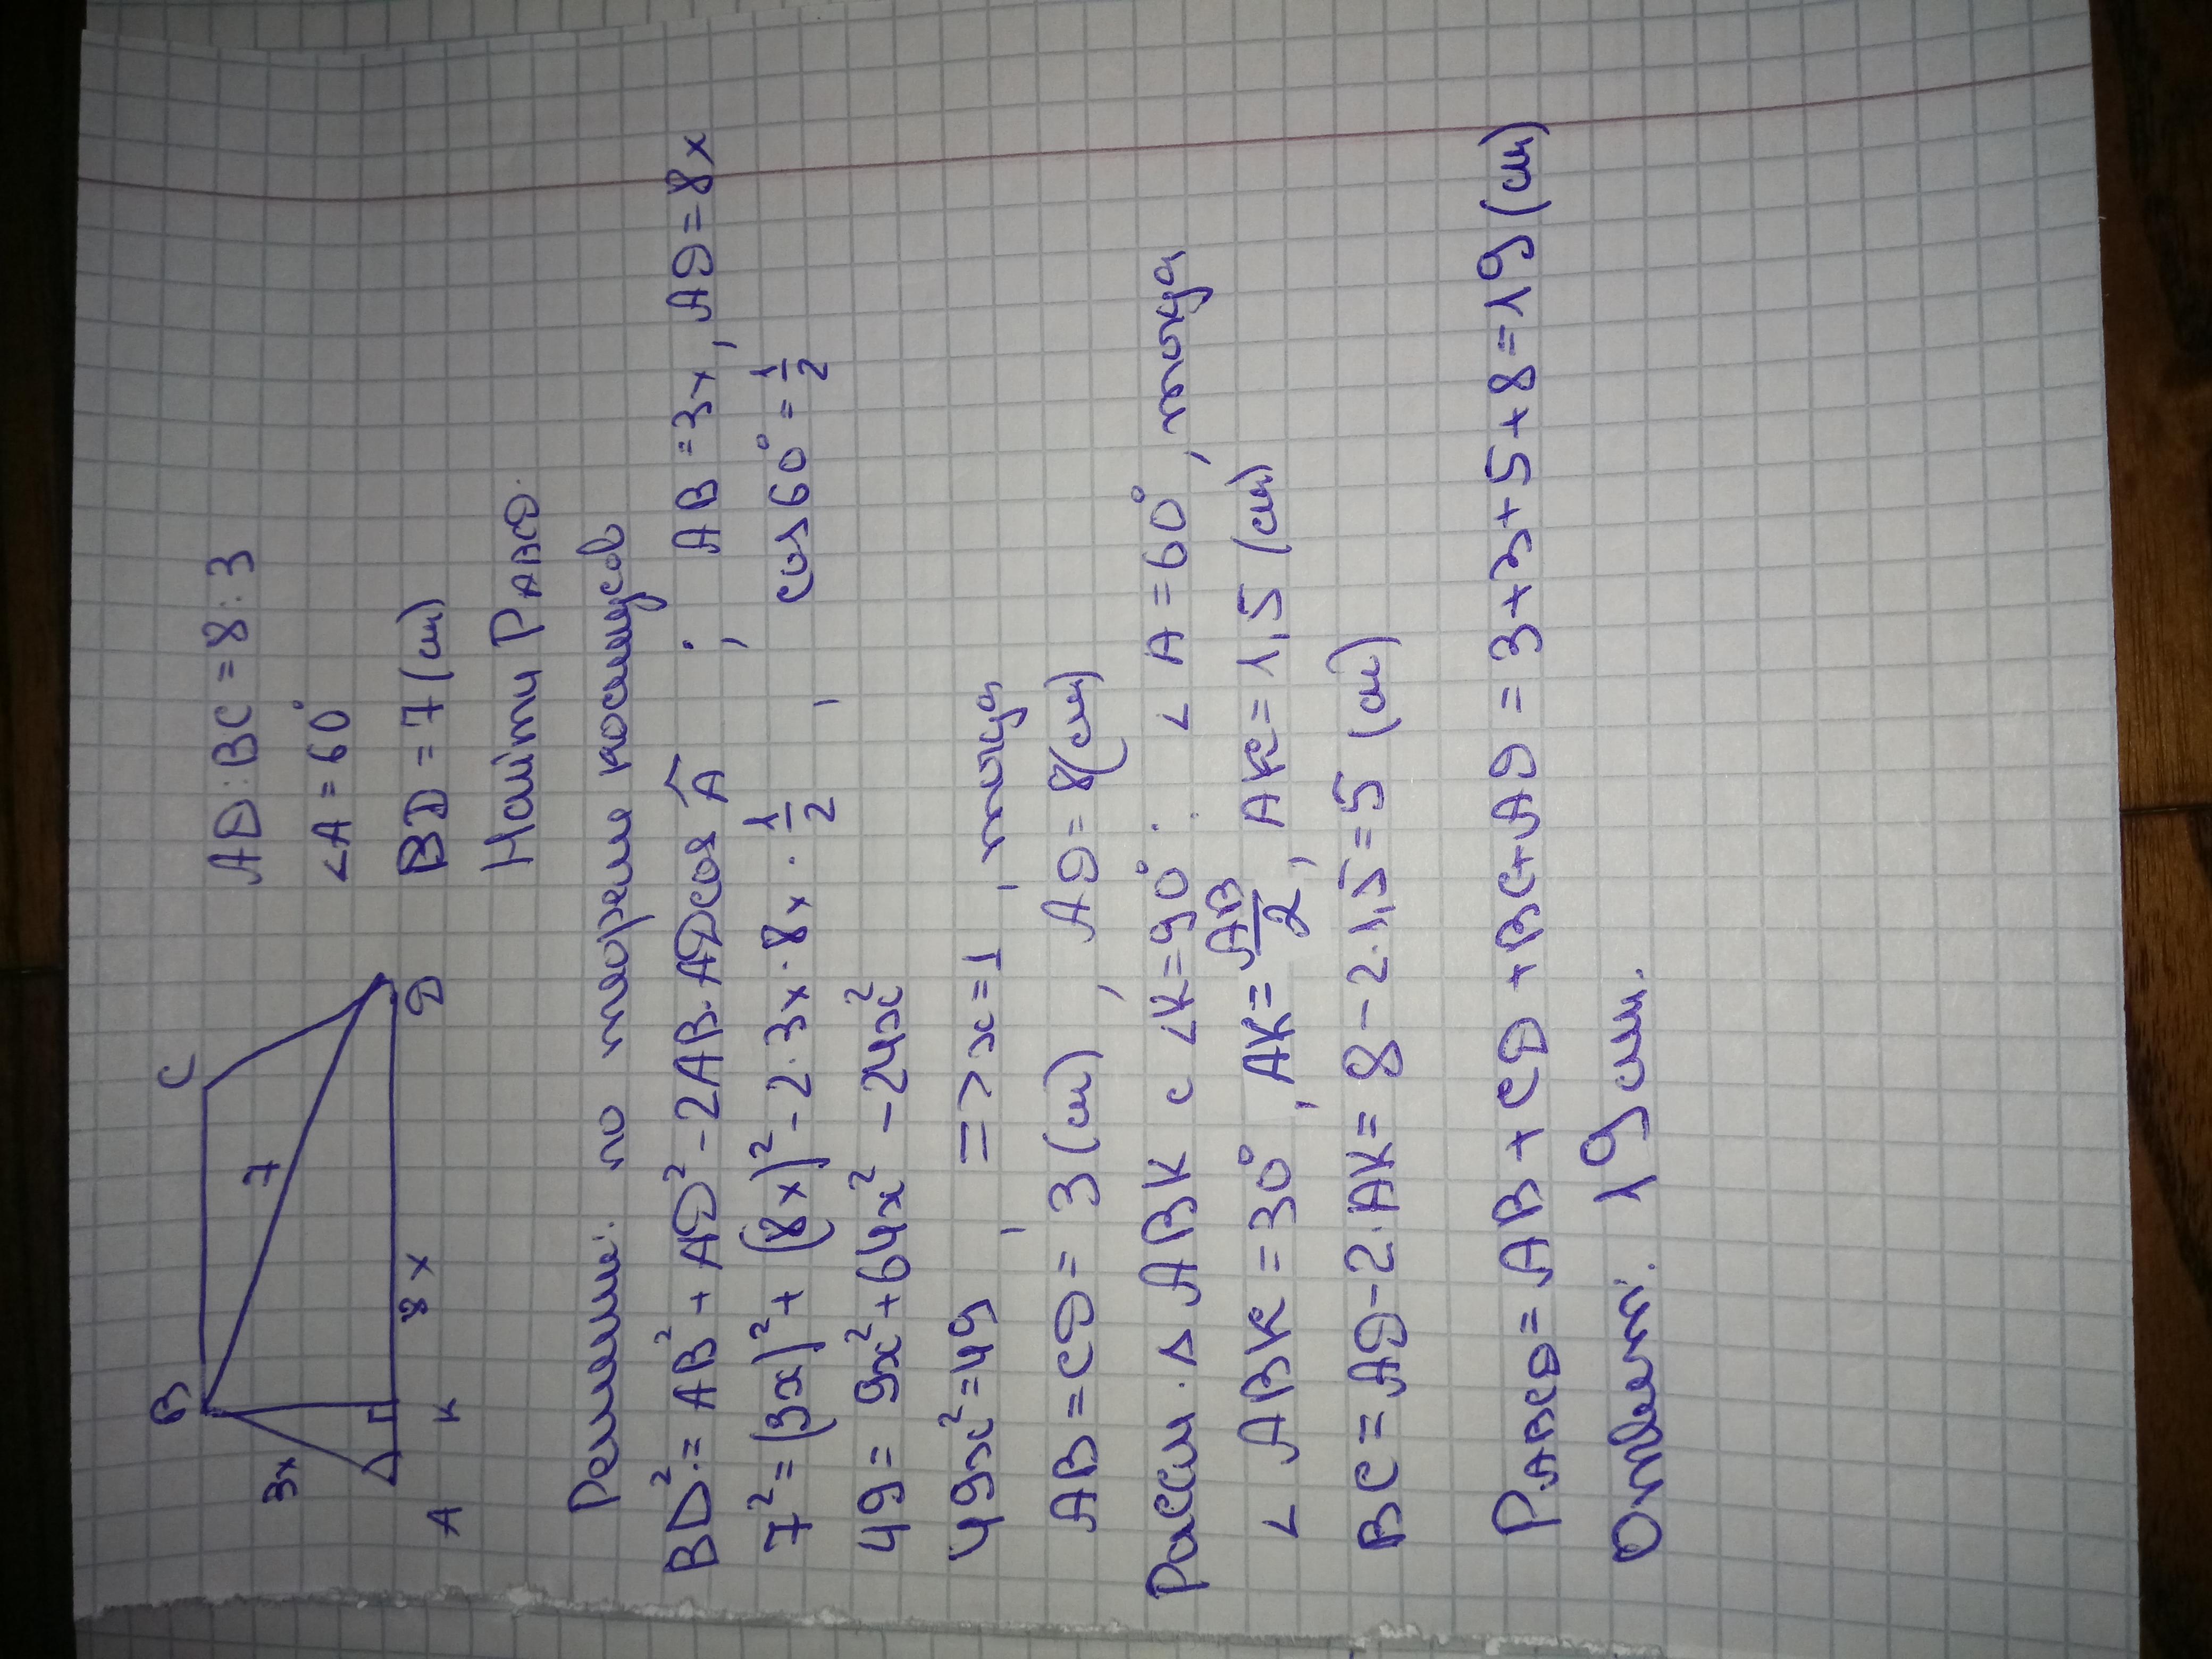 B C
3x 7
A K 8x D
AD:BC = 8:3
∠A = 60°
BD = 7 (см)
Найти P ABCD.
Решение: по теореме косинусов
BD² = AB² + AD² - 2AB·AD cos Â ; AB = 3x, AD = 8x
7² = (3x)² + (8x)² - 2·3x·8x·1/2, cos 60° = 1/2
49 = 9x² + 64x² - 24x²
49x² = 49, => x = 1, тогда
AB = CD = 3 (см), AD = 8 (см)
Рассм. Δ ABK с ∠K = 90°: ∠A = 60°, тогда
∠ABK = 30°, AK = AB/2, AK = 1,5 (см)
BC = AD - 2·AK = 8 - 2·1,5 = 5 (см)
P ABCD = AB + CD + BC + AD = 3+3+5+8 = 19 (см)
Ответ: 19 см.